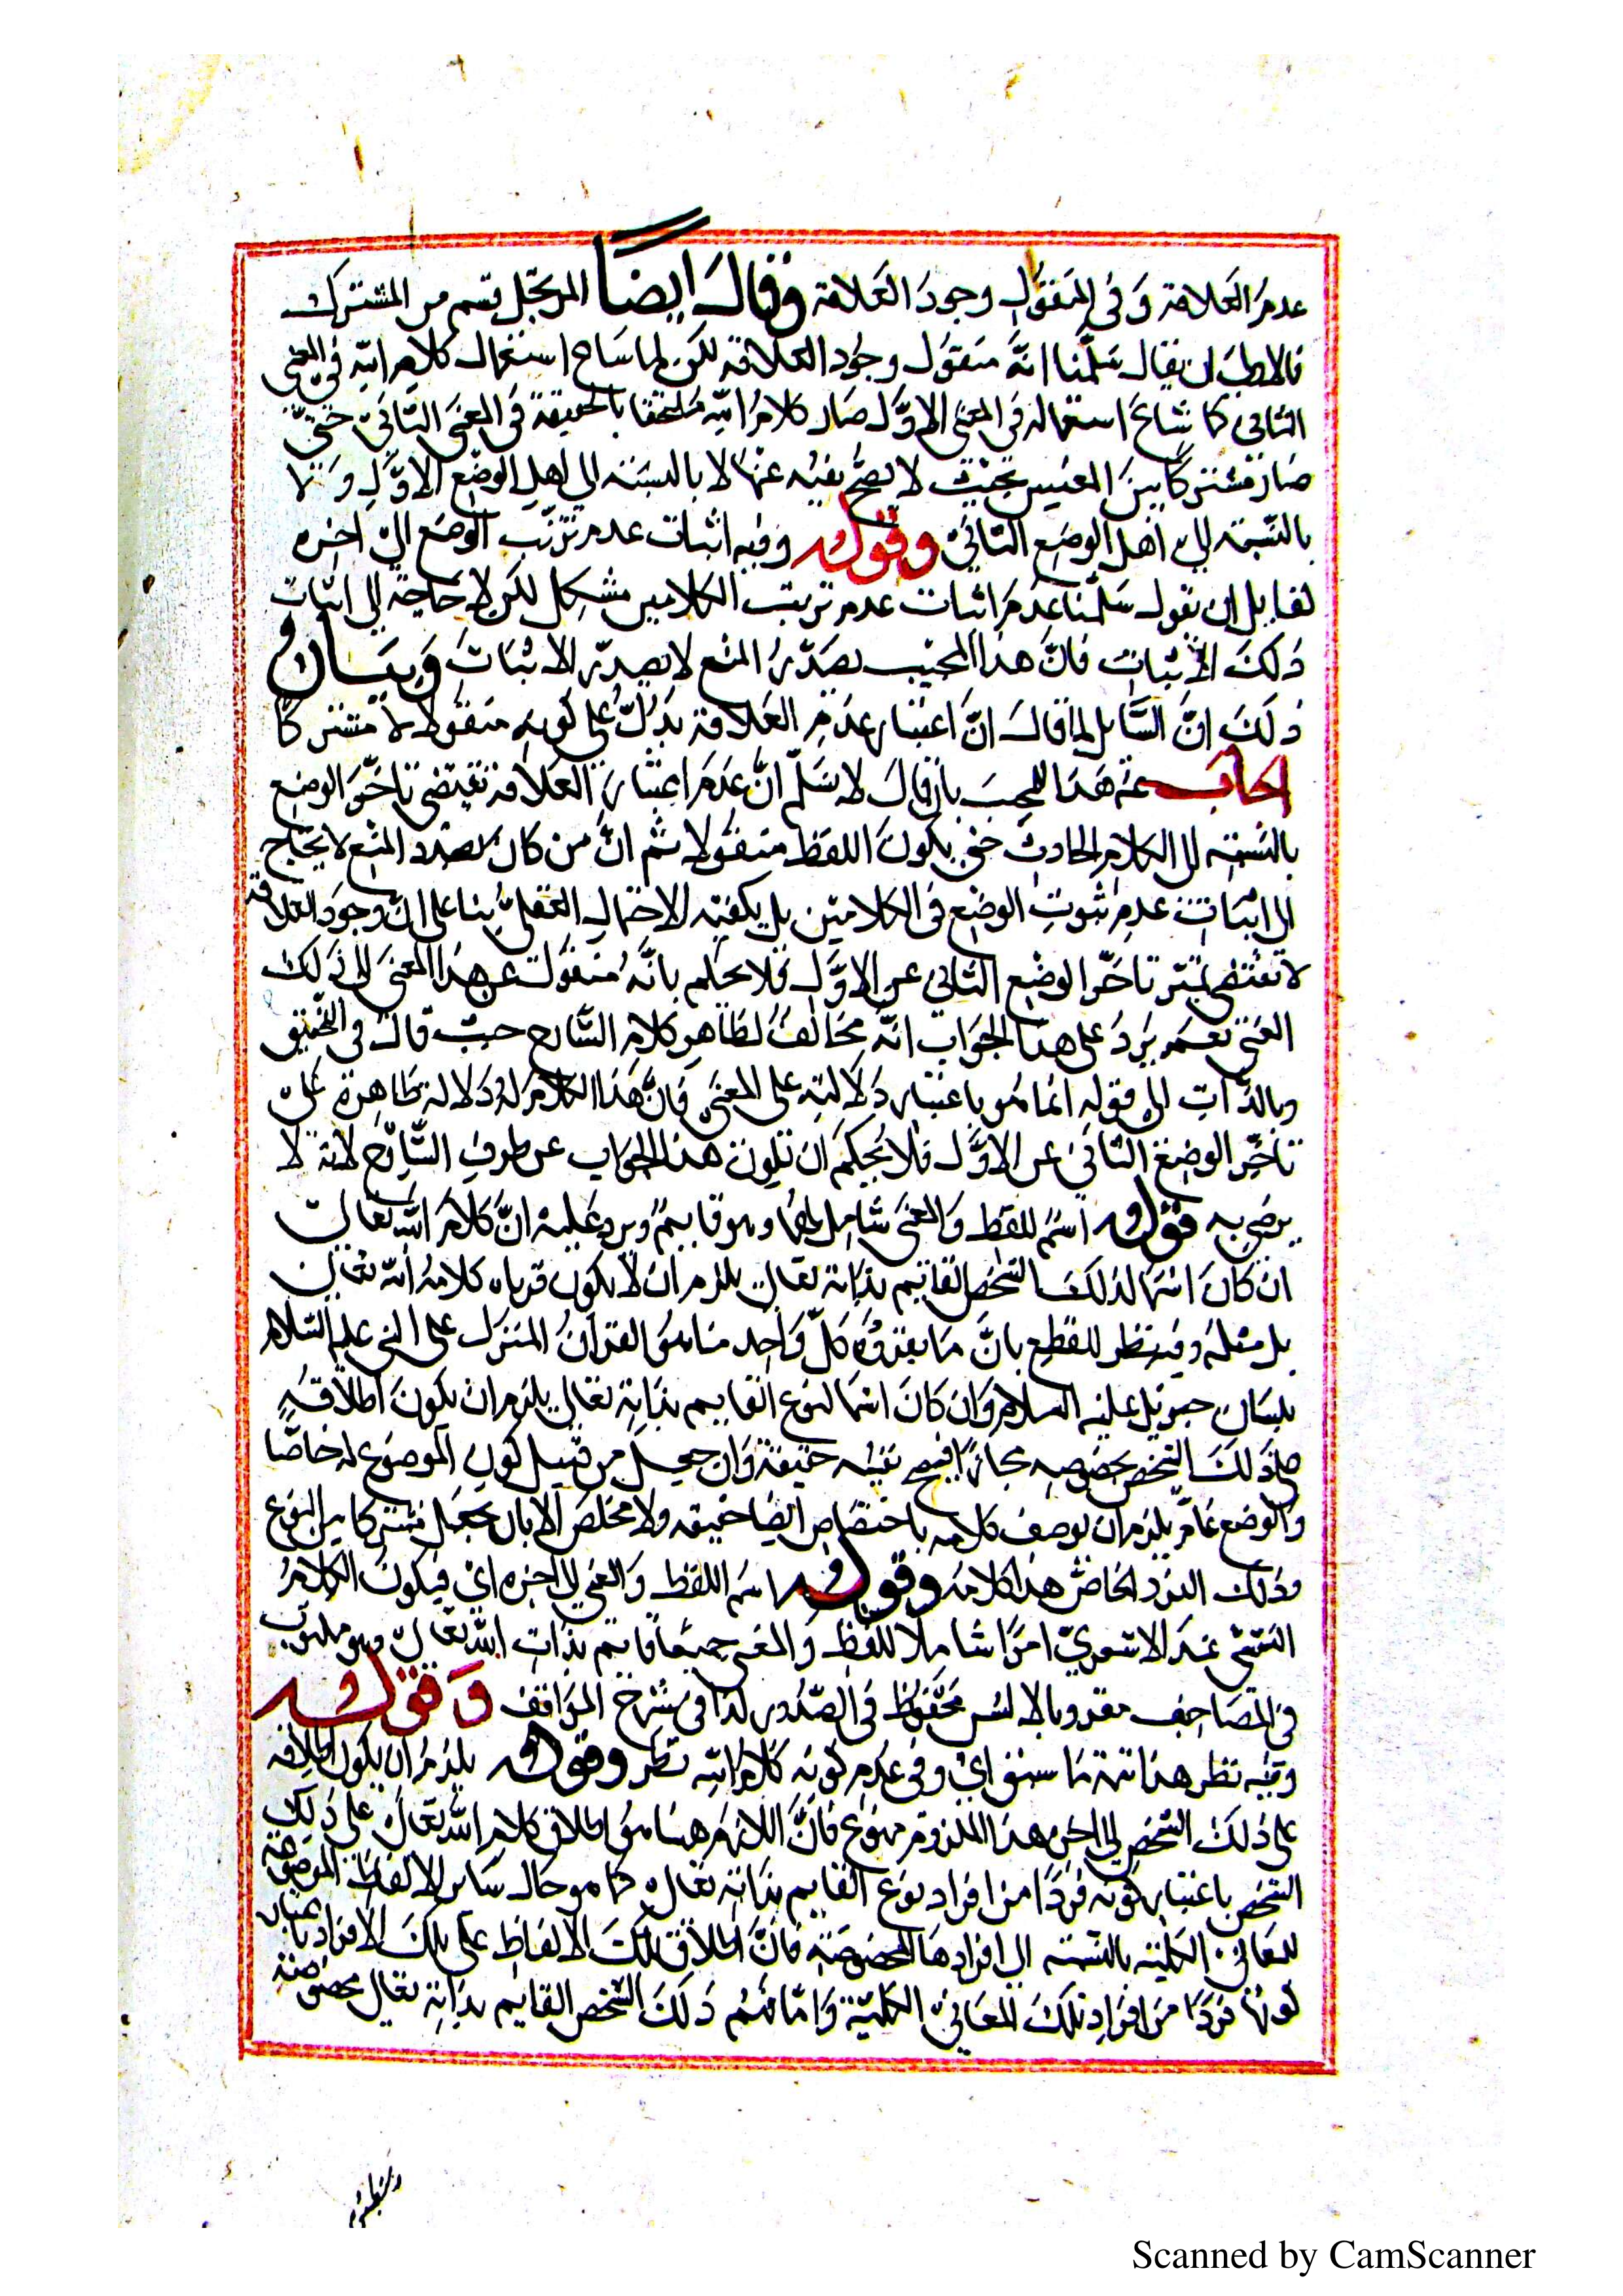 عدم العلاقة وفي المنقول وجود العلاقة وقال ايضا المرتجل قسم من المشترك
ان يقال سلمنا انه منقول وجود العلاقة لكن لما شاع استعمال كلام الله في المعنى
الثاني كما شاع استعماله في المعنى الاول صار كلام الله ملتحقا بالحقيقة في المعنى الثاني حتى
صار مشتركا بين المعنيين بحيث لا يصح نفيه عنها لا بالنسبة الى اهل الوضع الاول ولا
بالنسبة الى اهل الوضع الثاني وقوله وفيه اثبات عدم ترتب الوضع الى اخره
لقايل ان يقول سلمنا عدم اثبات عدم ترتيب الكلامين مشكل لكن لا حاجة الى اثبات
ذلك الاثبات فان هذا المجيب بصدد المنع لا بصدد الاثبات وبيان
ذلك ان السايل لما قال ان اعتبار عدم العلاقة يدل على كونه منقولا لا مشتركا
اجاب عنه هذا المجيب بان قال لا نسلم ان عدم اعتبار العلاقة تقتضي تاخر الوضع
بالنسبة الى الكلام الحادث حتى يكون اللفظ منقولا ثم ان من كان بصدد المنع لا يحتاج
الى اثبات عدم ثبوت الوضع في الكلامين بل يكفيه الاحتمال العقلي بنا على ان وجود العلاقة
لا تقتضي تاخر الوضع الثاني عن الاول فلا نحكم بانه منقول عن هذا المعنى الى ذلك
المعنى نعم يرد على هذا الجواب انه مخالف لظاهر كلام الشارح حيث قال في التحقيق
وبالذات الى قوله انما هو باعتبار دلالته على المعنى فان هذا الكلام له دلالة ظاهرة على
تاخر الوضع الثاني عن الاول فلا يحكم ان تكون هذا الجواب عن طرف الشارح لانه لا
يرضى به قوله اسم للفظ والمعنى شامل لهما وهو قايم ويرد عليه ان كلام الله تعالى
ان كان اسما لذلك الشخص القايم بذاته تعالى يلزم ان لا يكون ما قرناه كلامه الله تعالى
بل مثله وفيه نظر للقطع بان ما يقروه كل واحد منا هو القران المنزل على النبي عليه السلام
بلسان جبريل عليه السلام وان كان اسما لنوع القايم بذاته تعالى يلزم ان يكون اطلاقه
على ذلك الشخص بخصوصه مجازا فيصح نفيه حقيقة وان جعل من قبيل كون الموضوع له خاصا
والوضع عاما يلزم ان يوصف كلامه باختصاص ايضا حقيقه ولا مخلص الا بان يجعل مشتركا بين النوع
وذلك الفرد الخاص هذا كلامه وقوله اسم اللفظ والمعنى الى اخره اي فيكون الكلام
النفسي عند الاشعري امرا شاملا للفظ والمعنى جميعا قايم بذات الله تعالى وهو مكتوب
في المصاحف مقرو بالالسن محفوظ في الصدور كذا في شرح المواقف وقوله
وفيه نظر هذا تتمة ما سبق اي وفي عدم كونه كلام الله نظر وقوله يلزم ان يكون اطلاقه
على ذلك الشخص الى اخره هذا اللزوم ممنوع فان اللازم هنا هو اطلاق كلام الله تعالى على ذلك
الشخص باعتبار كونه فردا من افراد نوع القايم بذاته تعالى كما هو حال ساير الالفاظ الموضوعة
للمعاني الكلية بالنسبة الى افرادها المخصوصة فان اطلاق تلك الالفاظ على تلك الافراد باعتبار
كونها فردا من افراد تلك المعاني الكلية واما ذلك الشخص القايم بذاته تعالى بخصوصه
Scanned by CamScanner